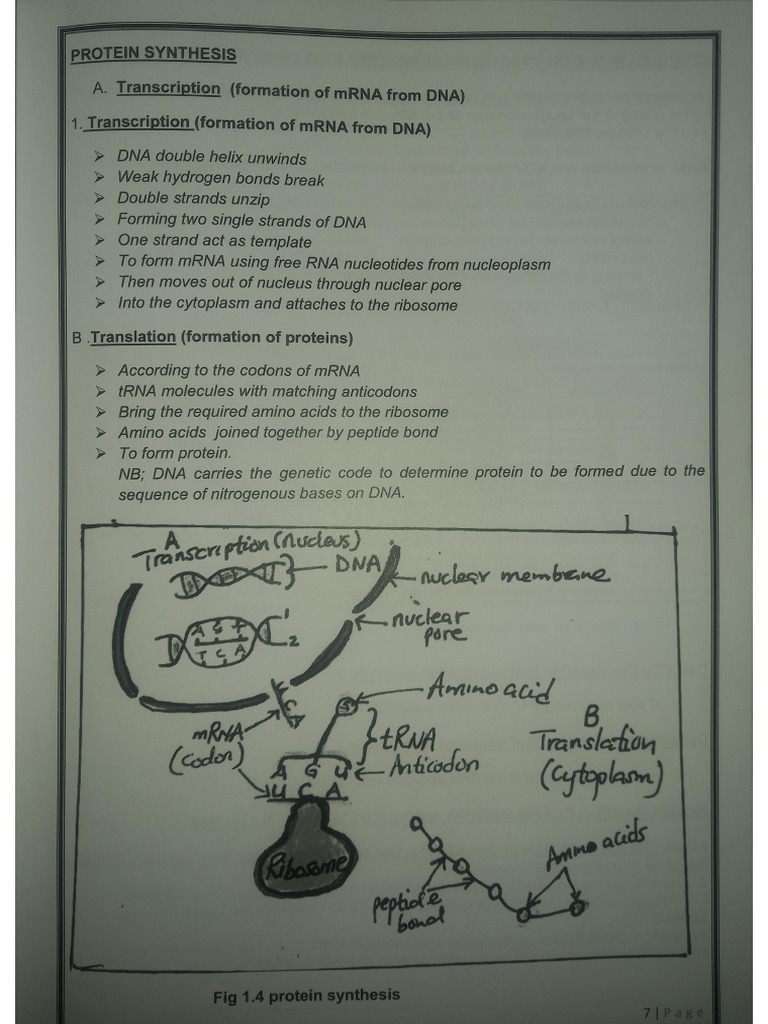 PROTEIN SYNTHESIS
A. Transcription (formation of mRNA from DNA)
1. Transcription (formation of mRNA from DNA)
➢ DNA double helix unwinds
➢ Weak hydrogen bonds break
➢ Double strands unzip
➢ Forming two single strands of DNA
➢ One strand act as template
➢ To form mRNA using free RNA nucleotides from nucleoplasm
➢ Then moves out of nucleus through nuclear pore
➢ Into the cytoplasm and attaches to the ribosome
B .Translation (formation of proteins)
➢ According to the codons of mRNA
➢ tRNA molecules with matching anticodons
➢ Bring the required amino acids to the ribosome
➢ Amino acids joined together by peptide bond
➢ To form protein.
NB; DNA carries the genetic code to determine protein to be formed due to the
sequence of nitrogenous bases on DNA.
A
Transcription (nucleus)
DNA
nuclear membrane
nuclear
pore
A G T
T C A
1
2
Amino acid
S
mRNA
(codon)
tRNA
Anticodon
A G U
U C A
Ribosome
B
Translation
(cytoplasm)
Amino acids
peptide
bond
Fig 1.4 protein synthesis
7 | Page